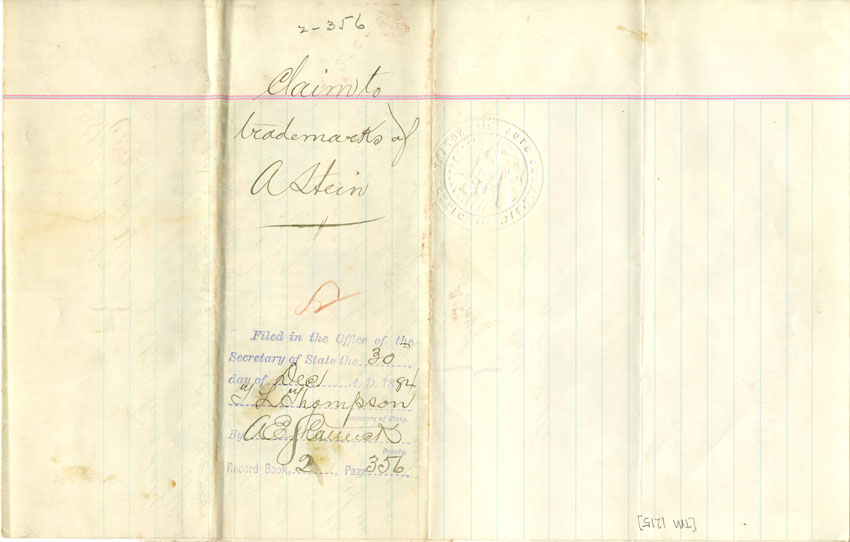 2-356
Claim to
trademarks of
A Stein
Filed in the Office of the
Secretary of State the 30
day of Dec A. D. 1884
T L Thompson
Secretary of State.
By A E
Deputy.
Record Book, 2, Page 356
[TM 1215]